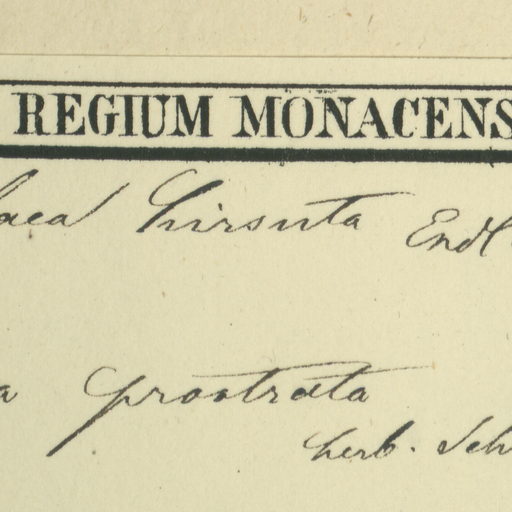 REGIUM MONACENS
hirsuta Endl
a prostrata
herb. Sch